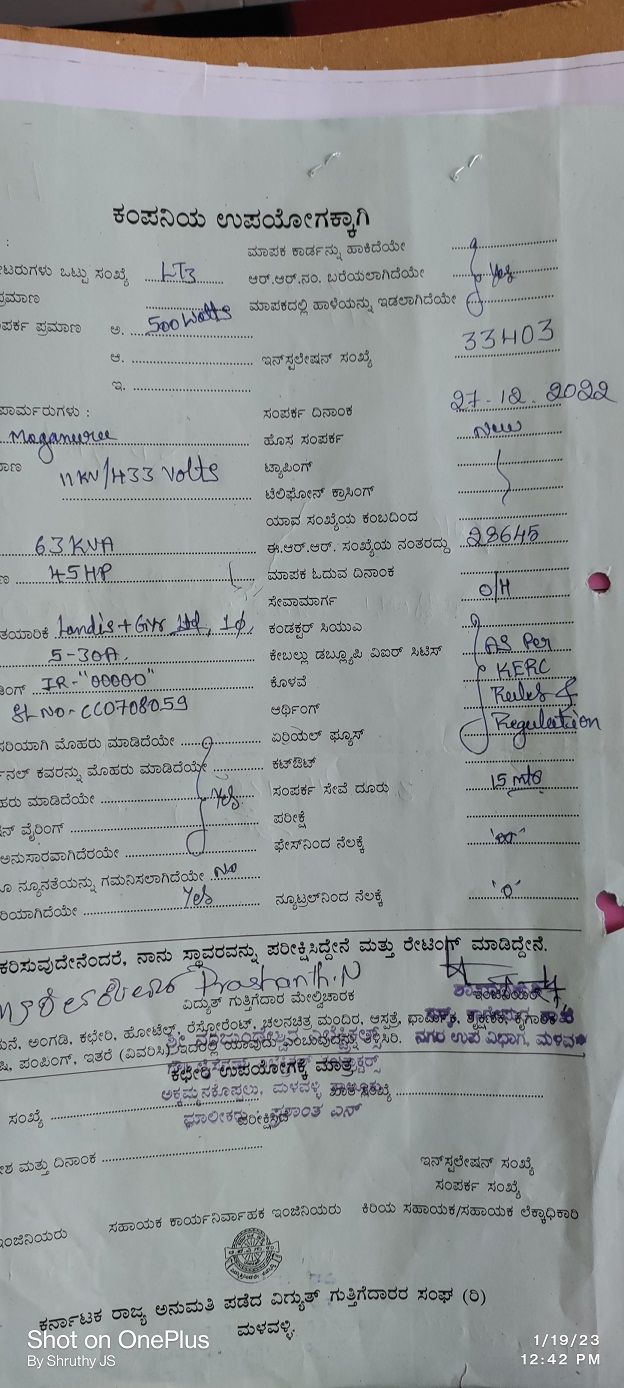 ಕಂಪನಿಯ ಉಪಯೋಗಕ್ಕಾಗಿ
ಮಾಪಕ ಕಾರ್ಡನ್ನು ಹಾಕಿದೆಯೇ
ಟರುಗಳು ಒಟ್ಟು ಸಂಖ್ಯೆ LT3 ಆರ್.ಆರ್.ನಂ. ಬರೆಯಲಾಗಿದೆಯೇ Yes
ಪ್ರಮಾಣ ಮಾಪಕದಲ್ಲಿ ಹಾಳೆಯನ್ನು ಇಡಲಾಗಿದೆಯೇ
ಪರ್ಕ ಪ್ರಮಾಣ ಅ. 500 Watts
ಆ. ಇನ್‌ಸ್ಟಲೇಷನ್ ಸಂಖ್ಯೆ 33403
ಇ.
ಪಾರ್ಮರುಗಳು : ಸಂಪರ್ಕ ದಿನಾಂಕ 27-12-2022
Moganuree ಹೊಸ ಸಂಪರ್ಕ New
ಾಣ 11 KV/433 Volts ಟ್ಯಾಪಿಂಗ್
ಟೆಲಿಫೋನ್ ಕ್ರಾಸಿಂಗ್
ಯಾವ ಸಂಖ್ಯೆಯ ಕಂಬದಿಂದ
63 KVA ಈ.ಆರ್.ಆರ್. ಸಂಖ್ಯೆಯ ನಂತರದ್ದು 28645
45 HP ಮಾಪಕ ಓದುವ ದಿನಾಂಕ
ಸೇವಾಮಾರ್ಗ O/H
ತಯಾರಿಕೆ Landis+Gyr Ltd, 1φ ಕಂಡಕ್ಟರ್ ಸಿಯುಎ
5-30A ಕೇಬಲ್ಲು ಡಬ್ಲ್ಯೂಪಿ ವಿಐರ್ ಸಿಟಿಸ್ As Per
ಡಿಂಗ್ IR-"00000" ಕೊಳವೆ KERC
Sl NO- CC0708059 ಅರ್ಥಿಂಗ್ Rules &
ಸರಿಯಾಗಿ ಮೊಹರು ಮಾಡಿದೆಯೇ ಏರಿಯೆಲ್ ಫ್ಯೂಸ್ Regulation
ನಲ್ ಕವರನ್ನು ಮೊಹರು ಮಾಡಿದೆಯೇ ಕಟ್‌ಔಟ್
ಹರು ಮಾಡಿದೆಯೇ Yes ಸಂಪರ್ಕ ಸೇವೆ ದೂರು 15 mts
ನ್ ವೈರಿಂಗ್ ಪರೀಕ್ಷೆ
ಅನುಸಾರವಾಗಿದೆರಯೇ ಫೇಸ್‌ನಿಂದ ನೆಲಕ್ಕೆ
ೂ ನ್ಯೂನತೆಯನ್ನು ಗಮನಿಸಲಾಗಿದೆಯೇ No
ರಿಯಾಗಿದೆಯೇ Yes ನ್ಯೂಟ್ರಲ್‌ನಿಂದ ನೆಲಕ್ಕೆ '0'
ಕರಿಸುವುದೇನೆಂದರೆ, ನಾನು ಸ್ಥಾವರವನ್ನು ಪರೀಕ್ಷಿಸಿದ್ದೇನೆ ಮತ್ತು ರೇಟಿಂಗ್ ಮಾಡಿದ್ದೇನೆ.
Prashanth.N
ವಿದ್ಯುತ್ ಗುತ್ತಿಗೆದಾರ ಮೇಲ್ವಿಚಾರಕ
ನೆ, ಅಂಗಡಿ, ಕಛೇರಿ, ಹೋಟೆಲ್, ರೆಸ್ಟೋರೆಂಟ್, ಚಲನಚಿತ್ರ ಮಂದಿರ, ಆಸ್ಪತ್ರೆ, ಧಾರ್ಮಿಕ, ಶೈಕ್ಷಣಿಕ, ಕೈಗಾರಿಕೆ
ಷಿ, ಪಂಪಿಂಗ್, ಇತರೆ (ವಿವರಿಸಿ) ಇದರಲ್ಲಿ ಯಾವುದು ಎಂಬುವುದನ್ನು ತಿಳಿಸಿರಿ. ನಗರ ಉಪ ವಿಭಾಗ, ಮಳವ
ಕಛೇರಿ ಉಪಯೋಗಕ್ಕೆ ಮಾತ್ರ
ಅಕ್ಕಮ್ಮನಕೊಪ್ಪಲು, ಮಳವಳ್ಳಿ
ಸಂಖ್ಯೆ ಪರೀಕ್ಷಿಸಿದೆ
ಮಾಲೀಕರು : ಪ್ರಶಾಂತ ಎನ್
ಶ ಮತ್ತು ದಿನಾಂಕ
ಇನ್‌ಸ್ಟಲೇಷನ್ ಸಂಖ್ಯೆ
ಸಂಪರ್ಕ ಸಂಖ್ಯೆ
ಂಜಿನಿಯರು ಸಹಾಯಕ ಕಾರ್ಯನಿರ್ವಾಹಕ ಇಂಜಿನಿಯರು ಕಿರಿಯ ಸಹಾಯಕ/ಸಹಾಯಕ ಲೆಕ್ಕಾಧಿಕಾರಿ
ಕರ್ನಾಟಕ ರಾಜ್ಯ ಅನುಮತಿ ಪಡೆದ ವಿದ್ಯುತ್ ಗುತ್ತಿಗೆದಾರರ ಸಂಘ (ರಿ)
ಮಳವಳ್ಳಿ.
Shot on OnePlus
By Shruthy JS
1/19/23
12:42 PM